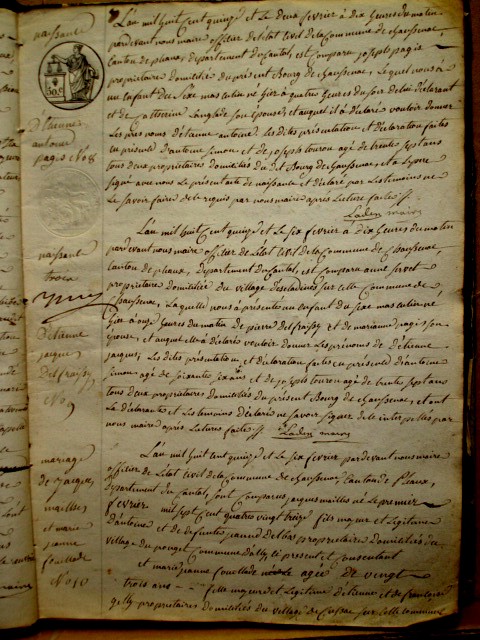 naissance
d'Etienne
antoine
pagis No 8
L'an mil huit cent quinze et le deux fevrier à dix heures du matin
pardevant nous maire officier de l'état civil de la commune de Chaussenac,
canton de pleaux, departement du Cantal, est comparu joseph pagis
propriétaire domicilié du présent Bourg de Chaussenac, lequel nous à
un enfant du sexe masculin né hier à quatre heures du soir de lui déclarant
et de Catherine Langlade son épouse, et auquel il à déclaré vouloir donner
Les prenoms d'Etienne antoine. les dites présentation et Déclaration faites
en présence d'antoine simon et de joseph touron agé de trente sept ans
tous deux propriétaires domiciliés du dit Bourg de Chaussenac et a le pere
signé avec nous le présent acte de naissance et déclaré par les temoins ne
le savoir faire de ce requis par nous maire après Lecture faite
Laden maire
naissance
L'an mil huit cent quinze et le six fevrier à dix heures du matin
pardevant nous maire officier de l'état civil de la commune de Chaussenac,
canton de pleaux, Departement du Cantal, est comparu
propriétaire domiciliée du village d'escladines sur cette Commune de
Chaussenac, Laquelle nous à présenté un enfant du sexe masculin né
hier à onze heures du matin de pierre delfraissy et de marianne pagis son
épouse, et auquel elle à déclaré vouloir donner Les prénoms de d'Etienne
jacques, les dites présentation et déclaration faites en présence d'antoine
simon agé de soixante six ans et de joseph touron agé de trente sept ans
tous deux propriétaires domiciliés du présent Bourg de Chaussenac, et ont
La déclarante et les temoins déclaré ne savoir signer de ce interpellés par
nous maire après Lecture faite
Laden maire
d'Etienne
jacques
Delfraissy
No 9
mariage
de jacques
mailles
et marie
jeanne
fouillade
No 10
L'an mil huit cent quinze et Le six fevrier pardevant nous maire
officier de L'état civil de la commune de Chaussenac, Canton de Pleaux,
Département du Cantal, sont comparus jacques mailles né Le premier
fevrier mil sept cent quatre vingt treize fils majeur et Légitime
d'antoine et de defunte jeanne propriétaire domiciliés du
village du pouget Commune d'ally ce présent et consentant
et marie jeanne fouillade agée de vingt
trois ans fille majeure et Légitime d'étienne et de françoise
propriétaires domiciliés du village de sur cette commune